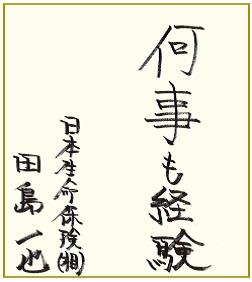 何事も経験
日本生命保険(相)
田島一也